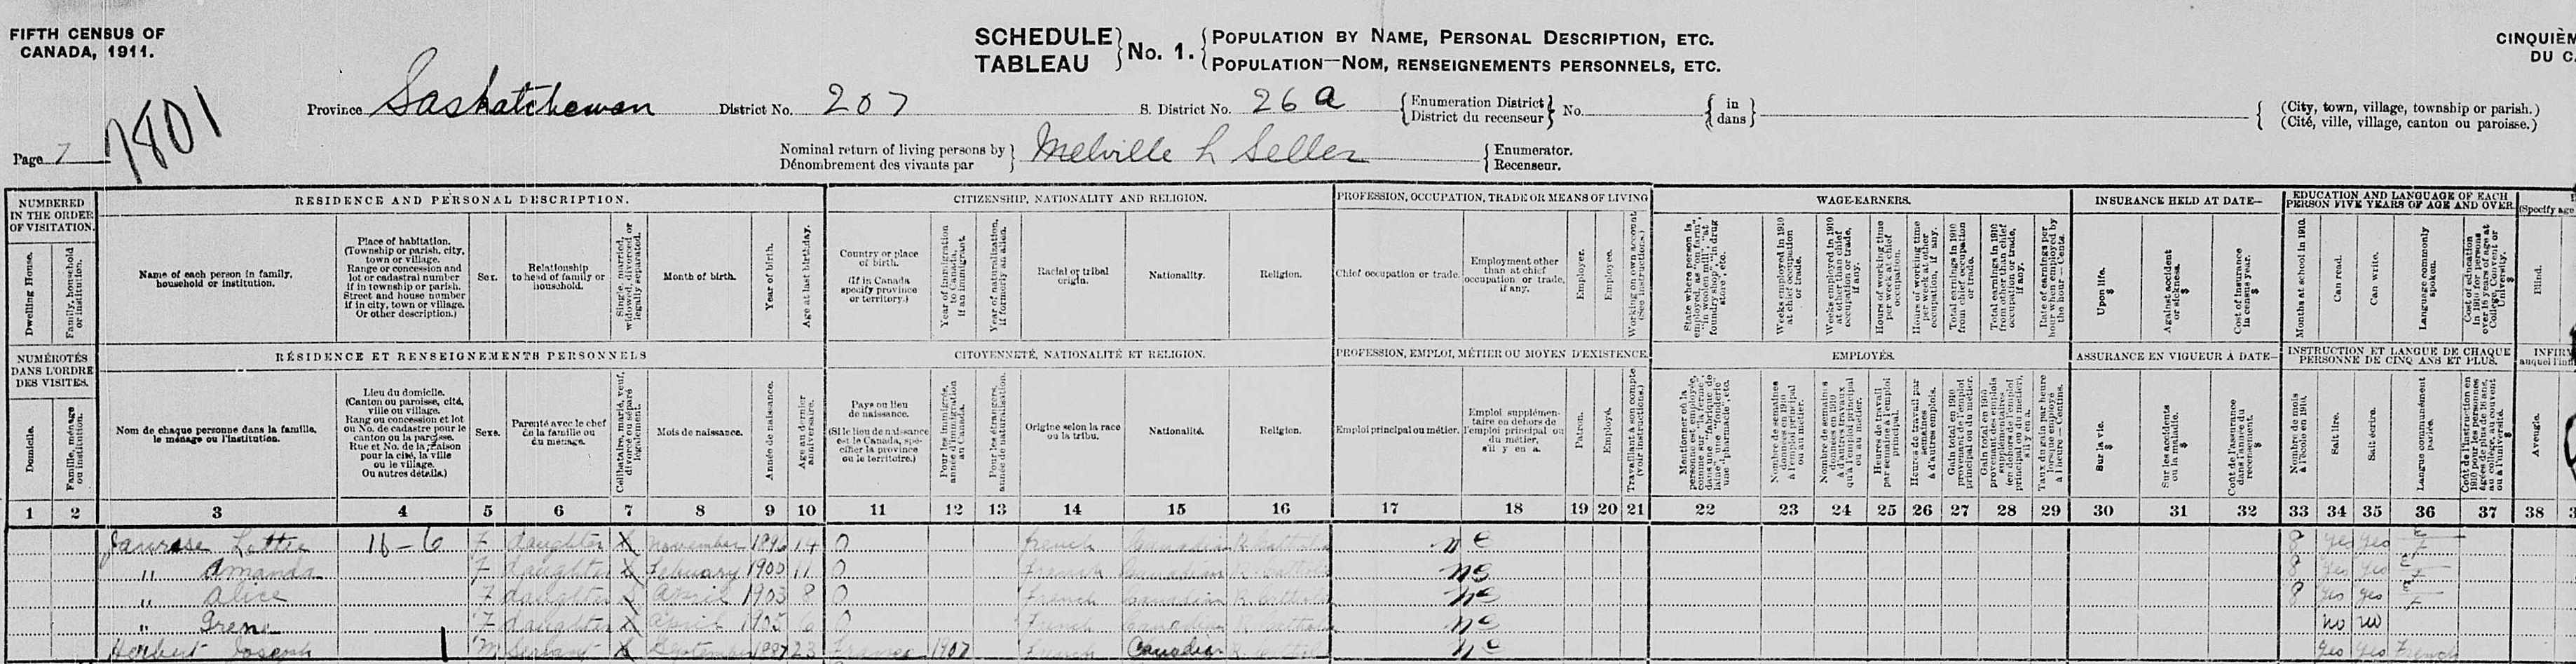 FIFTH CENSUS OF
CANADA, 1911.
SCHEDULE
TABLEAU
No. 1.
POPULATION BY NAME, PERSONAL DESCRIPTION, ETC.
POPULATION—NOM, RENSEIGNEMENTS PERSONNELS, ETC.
CINQUIÈM
DU C
7801
Province Saskatchewan District No. 207 S. District No. 26 a
Enumeration District
District du recenseur
No.
in
dans
(City, town, village, township or parish.)
(Cité, ville, village, canton ou paroisse.)
Page 7
Nominal return of living persons by
Dénombrement des vivants par
Melville L Seller
Enumerator.
Recenseur.
NUMBERED
IN THE ORDER
OF VISITATION.
RESIDENCE AND PERSONAL DESCRIPTION.
CITIZENSHIP, NATIONALITY AND RELIGION.
PROFESSION, OCCUPATION, TRADE OR MEANS OF LIVING
WAGE-EARNERS.
INSURANCE HELD AT DATE—
EDUCATION AND LANGUAGE OF EACH
PERSON FIVE YEARS OF AGE AND OVER.
(Specify age
Dwelling House.
Family, household
or institution.
Name of each person in family,
household or institution.
Place of habitation.
(Township or parish, city,
town or village.
Range or concession and
lot or cadastral number
if in township or parish.
Street and house number
if in city, town or village.
Or other description.)
Sex.
Relationship
to head of family or
household.
Single, married,
widowed, divorced or
legally separated.
Month of birth.
Year of birth.
Age at last birthday.
Country or place
of birth.
(If in Canada
specify province
or territory.)
Year of immigration
to Canada,
if an immigrant.
Year of naturalization,
if formerly an alien.
Racial or tribal
origin.
Nationality.
Religion.
Chief occupation or trade.
Employment other
than at chief
occupation or trade,
if any.
Employer.
Employee.
Working on own account
(See instructions.)
State where person is
employed, as "on farm",
"in woolen mill", "at
foundry shop", "in drug
store", etc.
Weeks employed in 1910
at chief occupation
or trade.
Weeks employed in 1910
at other than chief
occupation or trade,
if any.
Hours of working time
per week at chief
occupation.
Hours of working time
per week at other
occupation, if any.
Total earnings in 1910
from chief occupation
or trade.
Total earnings in 1910
from other than chief
occupation or trade,
if any.
Rate of earnings per
hour when employed by
the hour—Cents.
Upon life.
$
Against accident
or sickness.
$
Cost of insurance
in census year.
$
Months at school in 1910.
Can read.
Can write.
Language commonly
spoken.
Cost of education
in 1910 for persons
over 16 years of age at
College, Convent or
University.
$
Blind.
NUMÉROTÉS
DANS L'ORDRE
DES VISITES.
RÉSIDENCE ET RENSEIGNEMENTS PERSONNELS
CITOYENNETÉ, NATIONALITÉ ET RELIGION.
PROFESSION, EMPLOI, MÉTIER OU MOYEN D'EXISTENCE.
EMPLOYÉS.
ASSURANCE EN VIGUEUR À DATE—
INSTRUCTION ET LANGUE DE CHAQUE
PERSONNE DE CINQ ANS ET PLUS.
INFIR
Domicile.
Famille, ménage
ou institution.
Nom de chaque personne dans la famille,
le ménage ou l'institution.
Lieu du domicile.
(Canton ou paroisse, cité,
ville ou village.
Rang ou concession et lot
ou No. de cadastre pour le
canton ou la paroisse.
Rue et No. de la maison
pour la cité, la ville
ou le village.
Ou autres détails.)
Sexe.
Parenté avec le chef
de la famille ou
du ménage.
Célibataire, marié, veuf,
divorcé ou séparé
légalement.
Mois de naissance.
Année de naissance.
Age au dernier
anniversaire.
Pays ou lieu
de naissance.
(Si le lieu de naissance
est le Canada, spé-
cifier la province
ou le territoire.)
Pour les immigrés,
année d'immigration
au Canada.
Pour les étrangers,
année de naturalisation.
Origine selon la race
ou la tribu.
Nationalité.
Religion.
Emploi principal ou métier.
Emploi supplémen-
taire en dehors de
l'emploi principal ou
du métier,
s'il y en a.
Patron.
Employé.
Travaillant à son compte
(voir instructions.)
Nombre de semaines
données en 1910
à l'emploi principal
ou au métier.
Heures de travail
par semaine à l'emploi
principal.
Heures de travail par
semaines
à d'autres emplois.
Sur la vie.
$
Sur les accidents
ou la maladie.
$
Coût de l'assurance
dans l'année du
recensement.
$
Nombre de mois
à l'école en 1910.
Sait lire.
Sait écrire.
Langue communément
parlée.
Aveugle.
1 2 3 4 5 6 7 8 9 10 11 12 13 14 15 16 17 18 19 20 21 22 23 24 25 26 27 28 29 30 31 32 33 34 35 36 37 38
Lottie 16-6 F daughter S November 1896 14 O French Canadian R Catholic ne 8 yes yes E F
" Amanda F daughter S Febuary 1900 11 O French Canadian R Catholic ne 8 yes yes E F
" Alice F daughter S April 1903 8 O French Canadian R Catholic ne 8 yes yes E F
" Irene F daughter S April 1905 6 O French Canadian R Catholic ne no no
Herbert Joseph M Servant S September 1887 23 France 1907 French Canadian R Catholic ne yes yes French